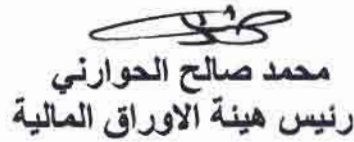 محمد صالح الحوارني
رئيس هيئة الاوراق المالية